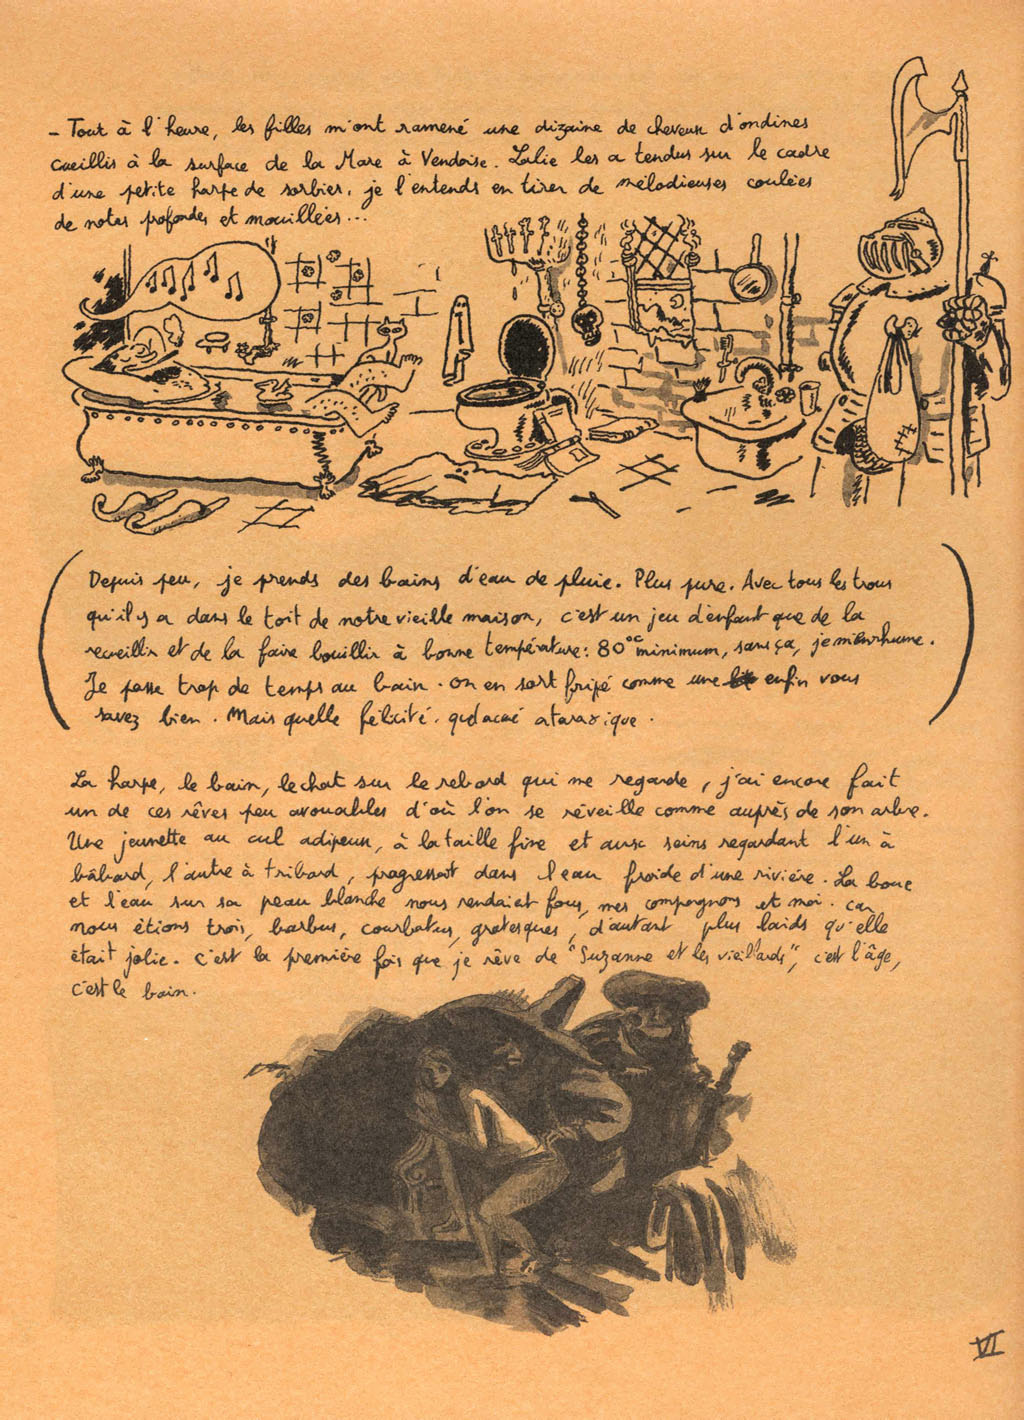 - Tout à l'heure, les filles m'ont ramené une dizaine de cheveux d'ondines
cueillis à la surface de la Mare à Vendoise. Lalie les a tendus sur le cadre
d'une petite harpe de sorbier. je l'entends en tirer de mélodieuses coulées
de notes profondes et mouillées...
Depuis peu, je prends des bains d'eau de pluie. Plus pure. Avec tous les trous
qu'il y a dans le toit de notre vieille maison, c'est un jeu d'enfant que de la
recueillir et de la faire bouillir à bonne température : 80°C minimum, sans ça, je m'enrhume.
Je passe trop de temps au bain. on en sort fripé comme une enfin vous
savez bien. Mais quelle félicité. ataraxique.
La harpe, le bain, le chat sur le rebord qui me regarde, j'ai encore fait
un de ces rêves peu avouables d'où l'on se réveille comme auprès de son arbre.
Une jeunette au cul adipeux, à la taille fine et aux seins regardant l'un à
bâbord, l'autre à tribord, progressait dans l'eau froide d'une rivière. La boue
et l'eau sur sa peau blanche nous rendaient fous, mes compagnons et moi. car
nous étions trois, barbus, courbatus, grotesques, d'autant plus laids qu'elle
était jolie. C'est la première fois que je rêve de "Suzanne et les vieillards", c'est l'âge,
c'est le bain.
VI